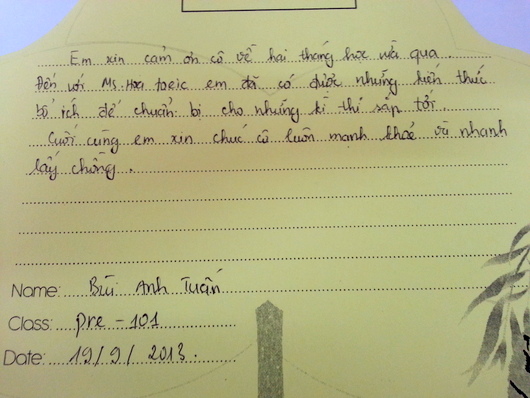 Em xin cảm ơn cô về hai tháng học vừa qua.
Đến với Ms. Hoa toeic em đã có được những kiến thức
bổ ích để chuẩn bị cho những kì thi sắp tới.
Cuối cùng em xin chúc cô luôn mạnh khoẻ và nhanh
lấy chồng.
Name: Bùi Anh Tuấn
Class: pre - 101
Date: 19/9/2013.